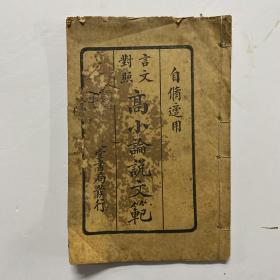 自脩適用
言文
對照
高小論說文範
書局發行